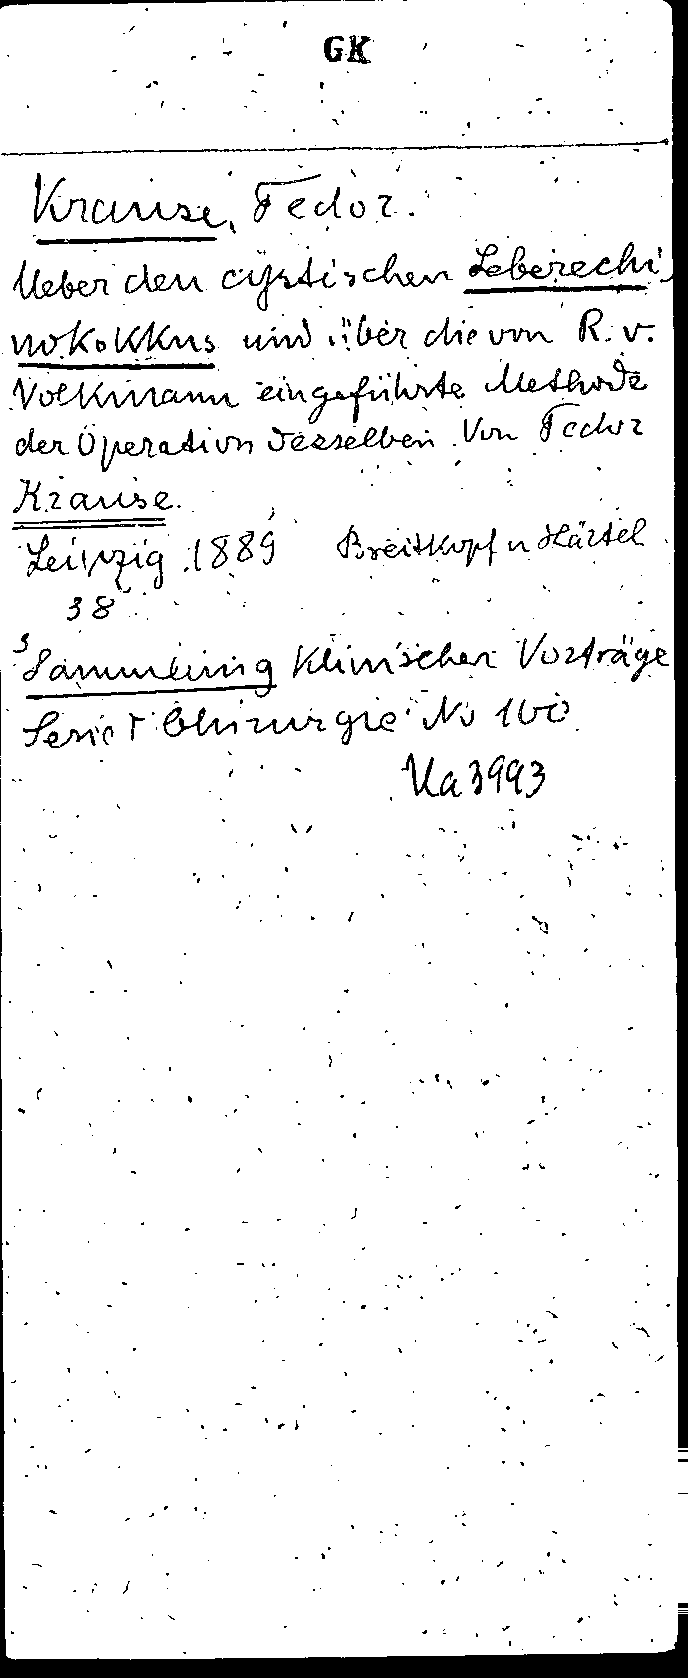 GK
Krause, Fedor.
Ueber den cystischen Leberechi,
nokokkus und über die von R. v.
Volkmann eingeführte Methode
der Operation desselben. Von Fedor
Krause.
Leipzig 1889 Breitkopf u Härtel
38
Sammlung klinischer Vorträge
Serie Chirurgie No 100
Ua 3993